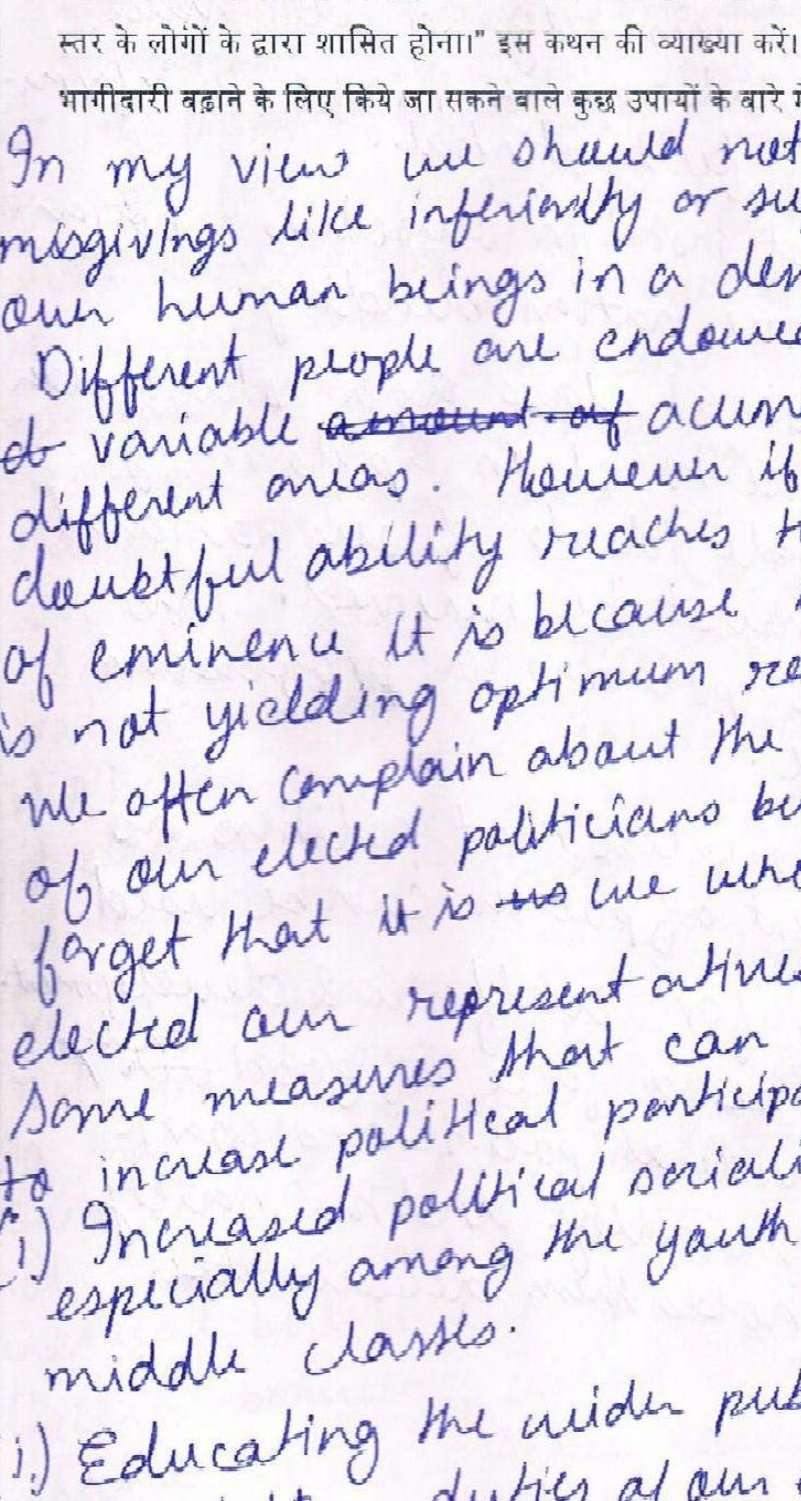 स्तर के लोगों के द्वारा शासित होना।" इस कथन की व्याख्या करें।
भागीदारी बढ़ाने के लिए किये जा सकने वाले कुछ उपायों के बारे में
In my view we should not
misgivings like inferiority or su
our human beings in a dem
Different people are endowe
variable amount of acum
different areas. However if
doubtful ability reaches t
of eminence it is because
is not yielding optimum re
We often complain about the
of our elected politicians bu
forget that it is us we who
elected our representatives
Some measures that can
to increase political participa
(i) Increased political sociali
especially among the youth
middle classes.
i.) Educating the wider pub
duties of our